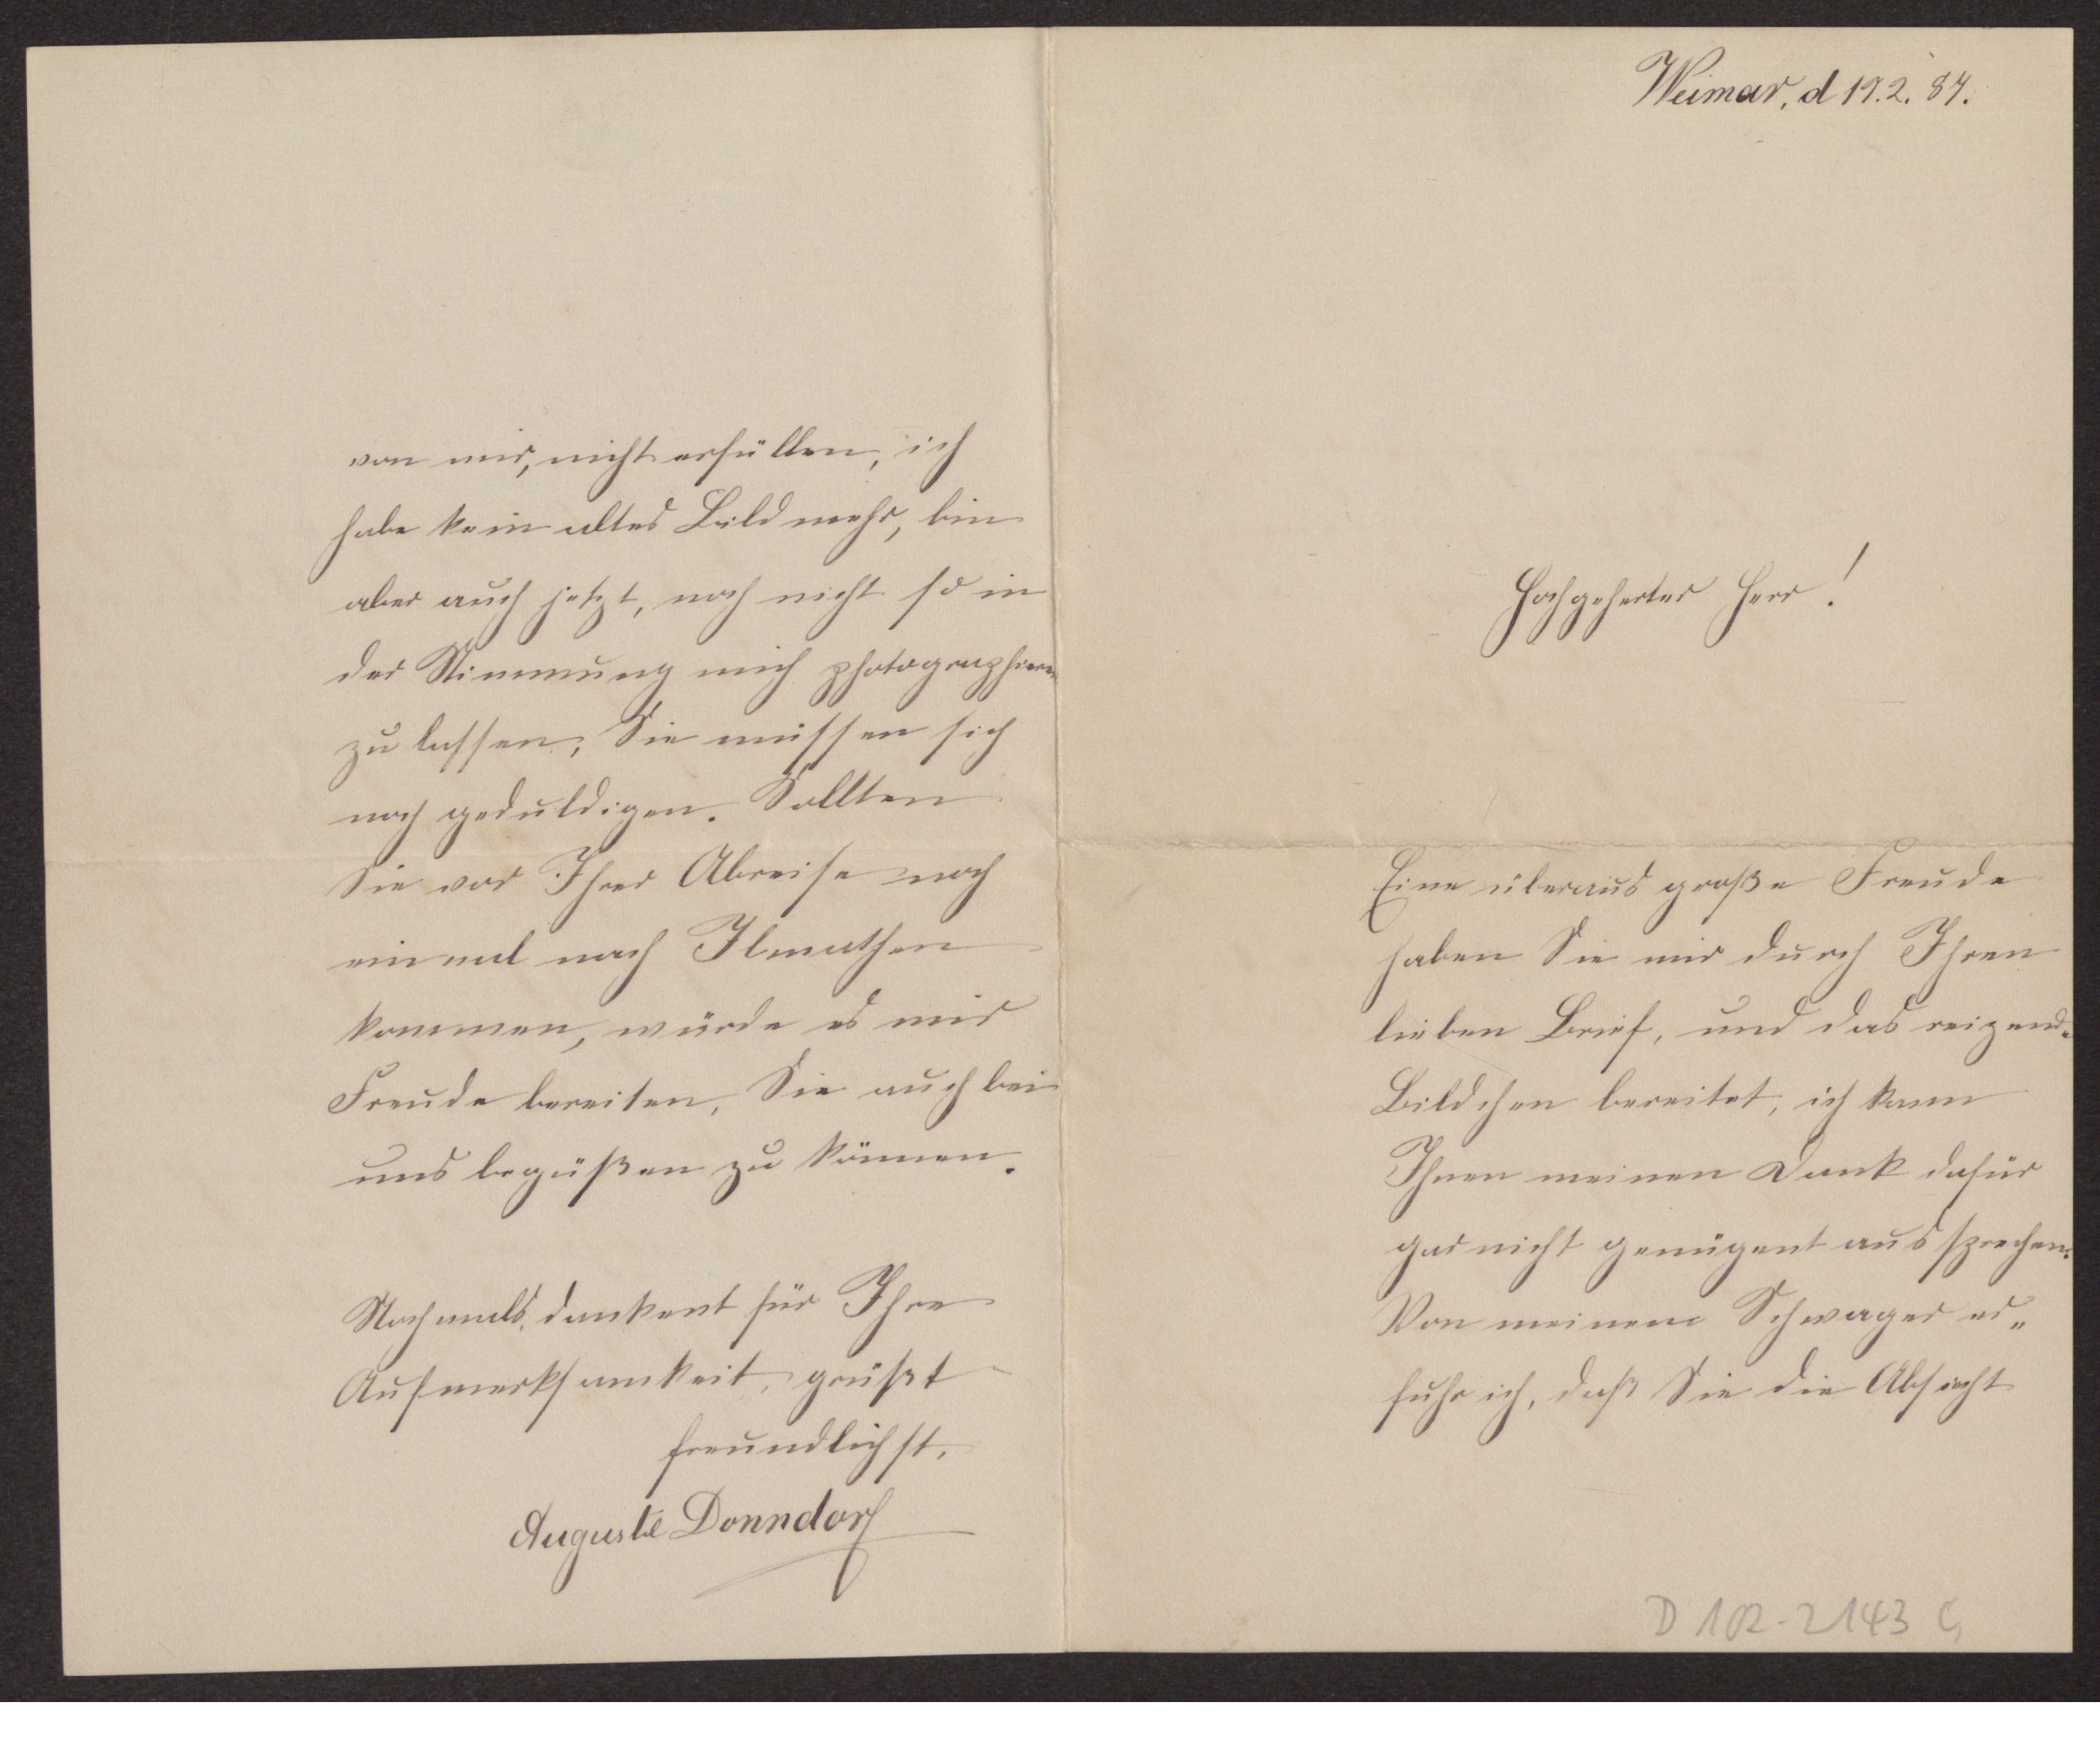 Weimar, d 19.2.87.
Hochgeherter Herr!
Eine überaus große Freude
haben Sie mir durch Ihren
lieben Brief, und das reizende
Bildchen bereitet, ich kann
Ihnen meinen Dank dafür
gar nicht genügent aussprechen.
Von meinem Schwager er„
fuhr ich, daß Sie die Absicht
D 102-2143 C,
von mir, nicht erfüllen, ich
habe kein altes Bild mehr, bin
aber auch jetzt, noch nicht so in
der Stimmung mich photographieren
zu lassen, Sie müssen sich
noch geduldigen. Sollten
Sie vor Ihrer Abreise noch
einmal nach Ilmathen
kommen, würde es mir
Freude bereiten, Sie auch bei
uns begüßen zu können.
Nochmals dankent für Ihre
Aufmerksamkeit, grüßt
freundlichst,
Auguste Donndorf